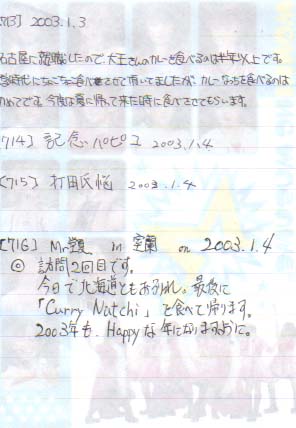 713] 2003.1.3
名古屋に就職したので、大王さんのカレーを食べるのは半年以上です。
食べさせて頂いてましたが、カレーなっちを食べるのは
めてです。今度は夏に帰って来た時に食べさせてもらいます。
714] 記念パピコ 2003.1.4
[715] 打田氏悩 2003.1.4
[716] Mr. in 室蘭 on 2003.1.4
◎ 訪問2回目です。
今日で北海道ともお別れ。最後に
「Curry Natchi」を食べて帰ります。
2003年も、Happyな年になりますように。